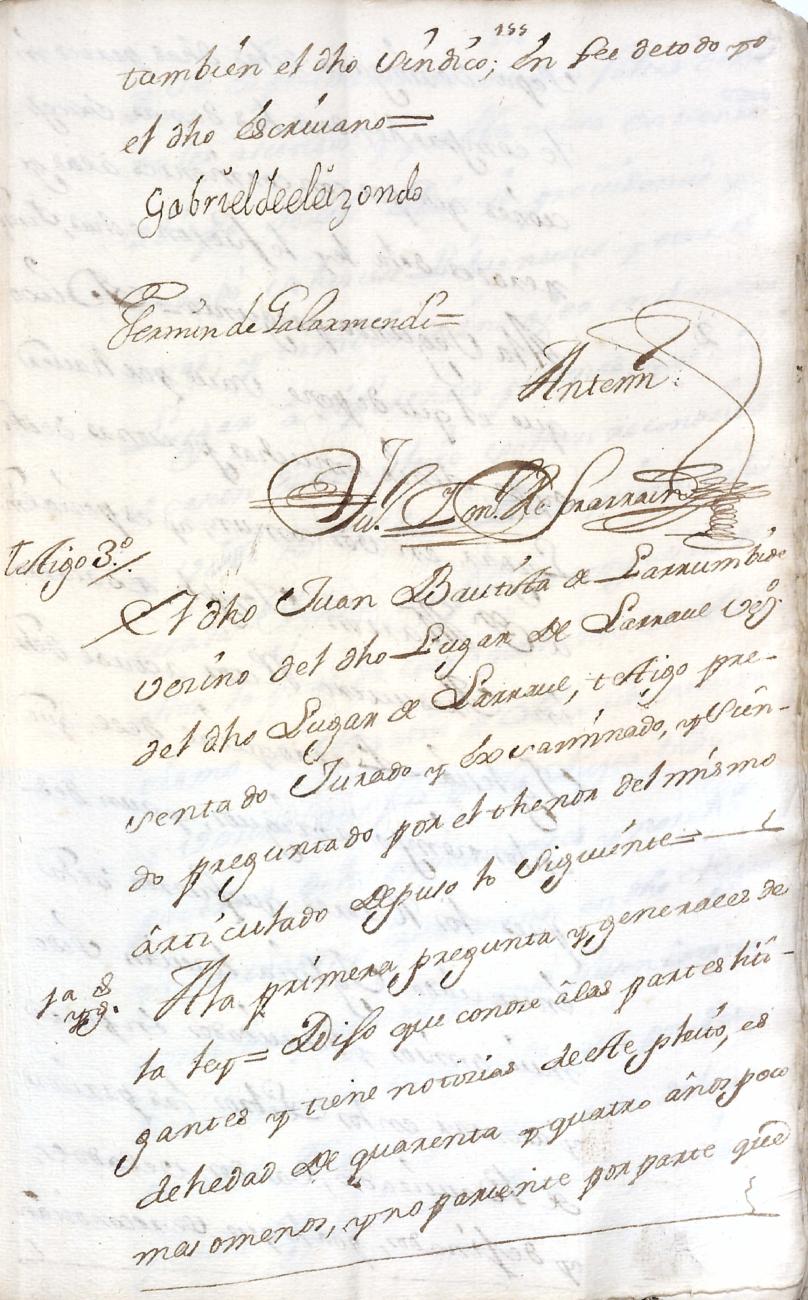 155
también el dho síndico; En fee de todo yo
el dho Escriuano=
Gabriel de eleizondo
Fermin de Galarmendi=
Ante mi
de Ynarraen
testigo 3.º El dho Juan Bautista de Larrumbide
vezino del dho Lugar de Larraul vezº
del dho Lugar de Larraul, testigo pre-
sentado Jurado y Exsaminado, y Sien-
do preguntado por el thenor del mismo
árticulado depuso lo Siguiente=
1ª & yg. Ala primera pregunta y generales de
la ley= Dijo que conoce âlas partes liti-
gantes y tiene notorias de este pleito, es
de hedad de quarenta y quatro años poco
mas omenos, y no pariente por parte que